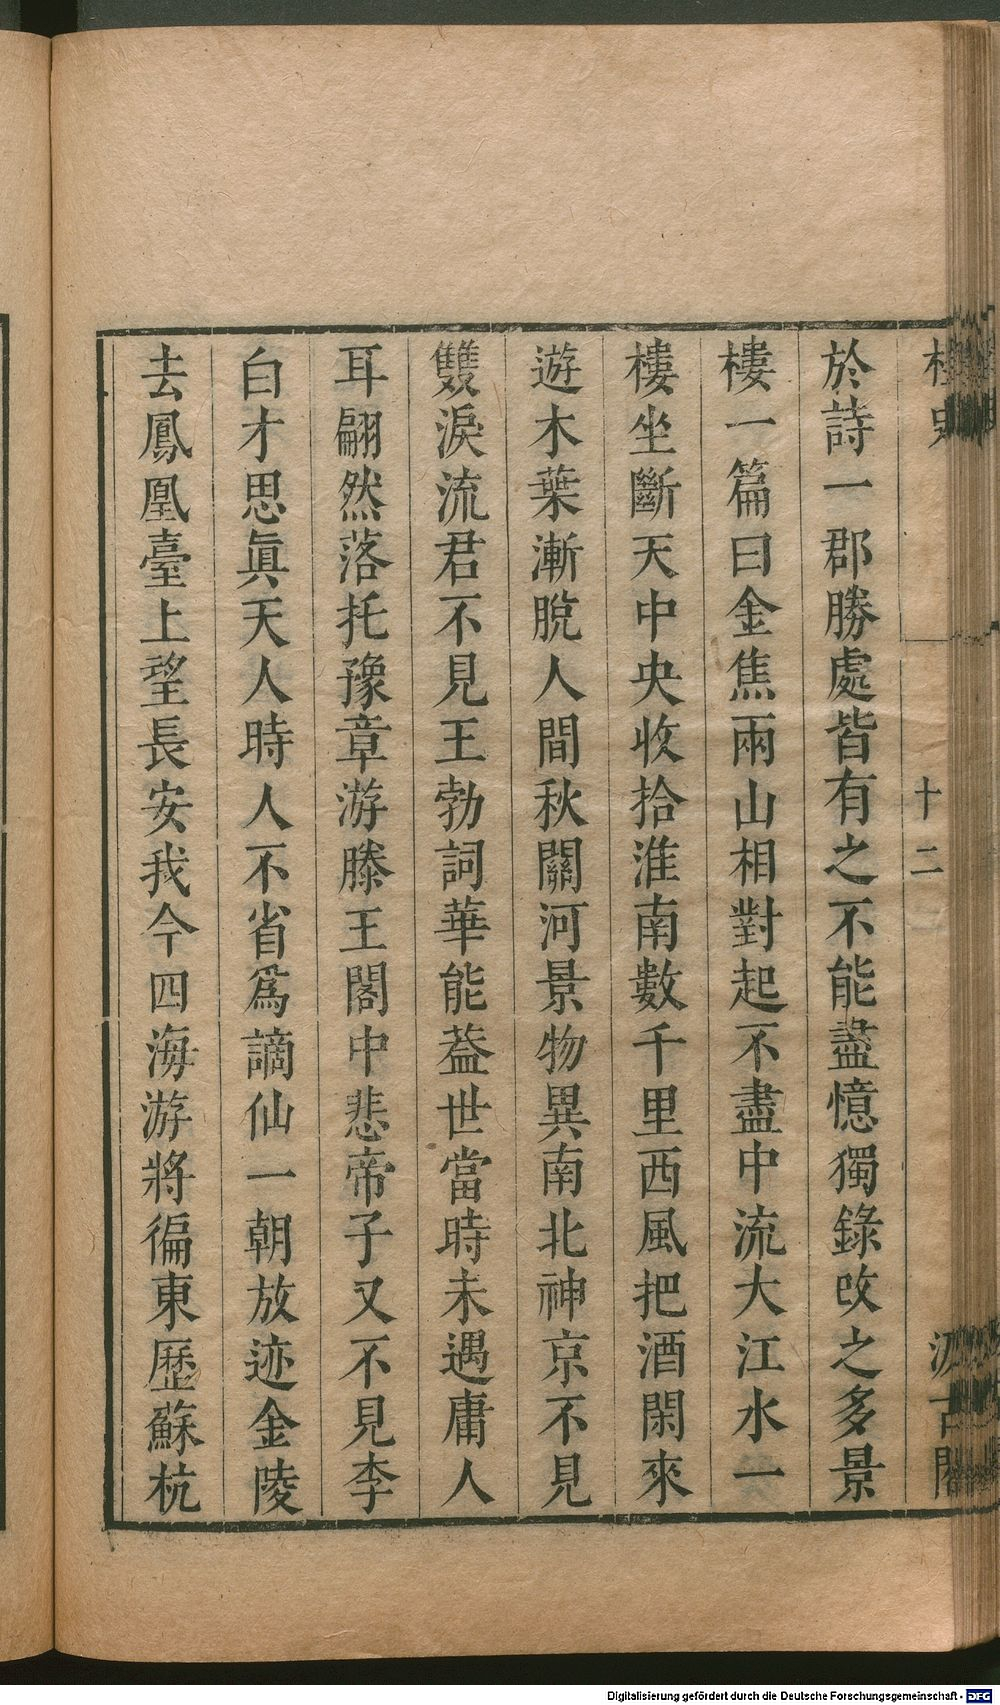 史
十二
汲古閣
於詩一郡勝處皆有之不能盡憶獨錄改之多景
樓一篇曰金焦兩山相對起不盡中流大江水一
樓坐斷天中央收拾淮南數千里西風把酒閑來
遊木葉漸脫人間秋關河景物異南北神京不見
雙淚流君不見王勃詞華能葢世當時未遇庸人
耳翩然落托豫章游滕王閣中悲帝子又不見李
白才思眞天人時人不省爲謫仙一朝放迹金陵
去鳳凰臺上望長安我今四海游將徧東歷蘇杭
Digitalisierung gefördert durch die Deutsche Forschungsgemeinschaft - DFG